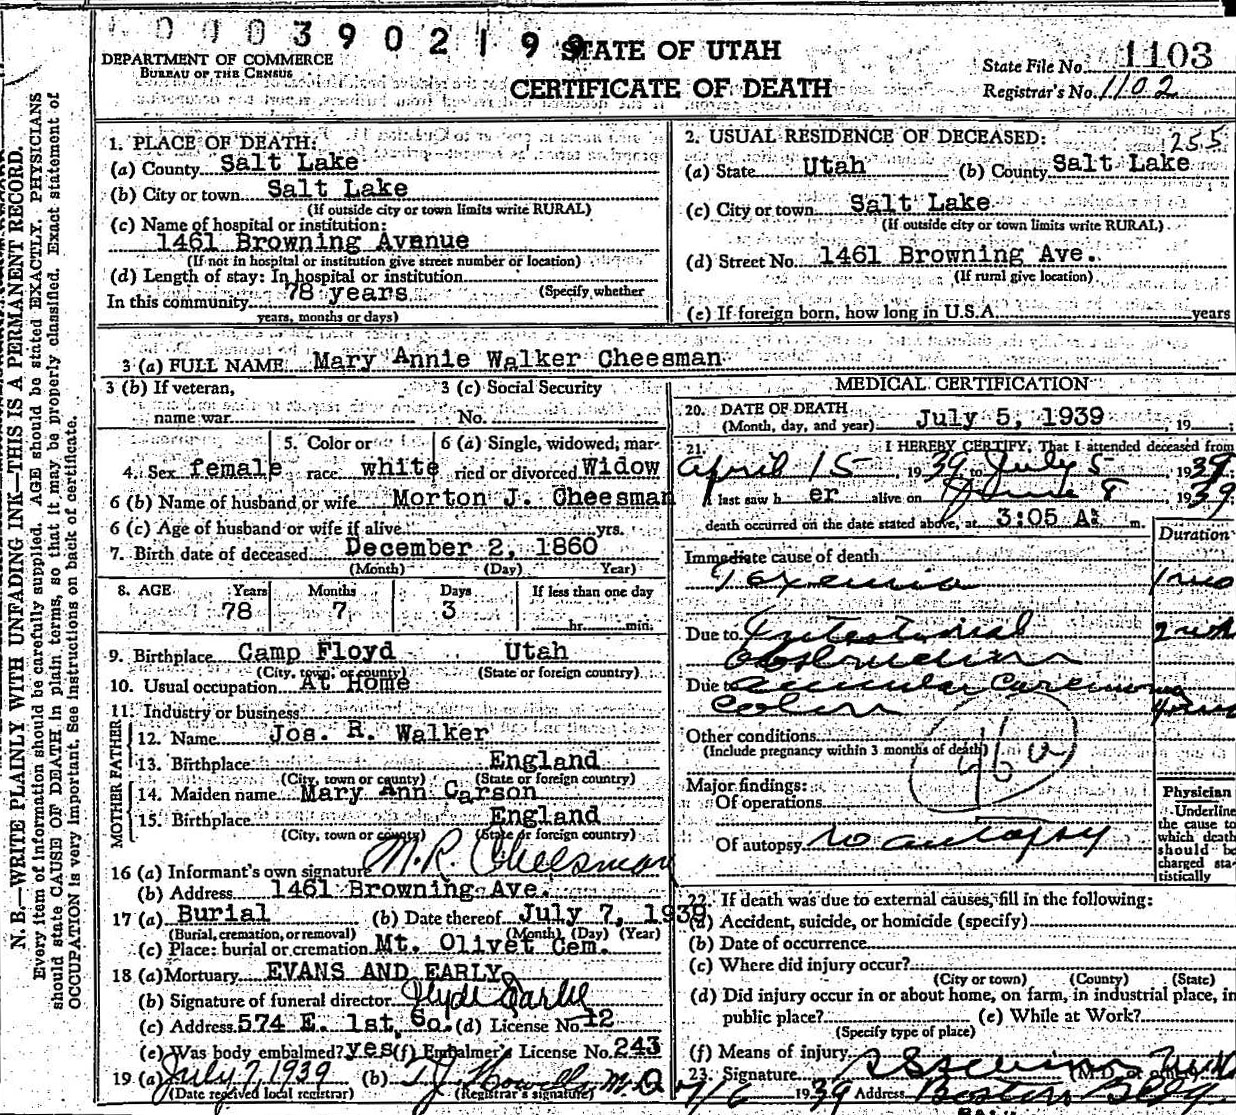 0003902199
STATE OF UTAH
CERTIFICATE OF DEATH
DEPARTMENT OF COMMERCE
BUREAU OF THE CENSUS
State File No. 1103
Registrar's No. 1102
N. B.—WRITE PLAINLY WITH UNFADING INK—THIS IS A PERMANENT RECORD.
Every item of information should be carefully supplied. AGE should be stated EXACTLY. PHYSICIANS
should state CAUSE OF DEATH in plain terms, so that it may be properly classified. Exact statement of
OCCUPATION is very important. See instructions on back of certificate.
1. PLACE OF DEATH:
(a) County Salt Lake
(b) City or town Salt Lake
(If outside city or town limits write RURAL)
(c) Name of hospital or institution:
1461 Browning Avenue
(If not in hospital or institution give street number or location)
(d) Length of stay: In hospital or institution
(Specify whether
In this community 78 years
years, months or days)
2. USUAL RESIDENCE OF DECEASED:
255
(a) State Utah (b) County Salt Lake
(c) City or town Salt Lake
(If outside city or town limits write RURAL)
(d) Street No. 1461 Browning Ave.
(If rural give location)
(e) If foreign born, how long in U.S.A. years
3 (a) FULL NAME Mary Annie Walker Cheesman
3 (b) If veteran,
name war
3 (c) Social Security
No.
4. Sex female
5. Color or
race white
6 (a) Single, widowed, mar-
ried or divorced Widow
6 (b) Name of husband or wife Morton J. Cheesman
6 (c) Age of husband or wife if alive yrs.
7. Birth date of deceased December 2, 1860
(Month) (Day) Year)
8. AGE Years Months Days If less than one day
78 7 3 hr. min.
9. Birthplace Camp Floyd Utah
(City, town, or county) (State or foreign country)
10. Usual occupation At Home
11. Industry or business
FATHER
12. Name Jos. R. Walker
13. Birthplace England
(City, town or county) (State or foreign country)
MOTHER
14. Maiden name Mary Ann Carson
15. Birthplace England
(City, town or county) (State or foreign country)
16 (a) Informant's own signature M. R. Cheesman
(b) Address 1461 Browning Ave.
17 (a) Burial (b) Date thereof July 7, 1939
(Burial, cremation, or removal) (Month) (Day) (Year)
(c) Place: burial or cremation Mt. Olivet Cem.
18 (a) Mortuary EVANS AND EARLY
(b) Signature of funeral director
(c) Address 574 E. 1st So. (d) License No. 12
(e) Was body embalmed? yes (f) Embalmer's License No. 243
19 (a) July 7, 1939 (b) T. J. Howells M.D.
(Date received local registrar) (Registrar's signature)
MEDICAL CERTIFICATION
20. DATE OF DEATH
(Month, day, and year) July 5, 1939, 19
21. I HEREBY CERTIFY, That I attended deceased from
April 15, 1939 to July 5, 1939
I last saw her alive on June 8, 1939
death occurred on the date stated above, at 3:05 A: m.
Duration
Immediate cause of death
Toxemia 1 mo
Due to Intestinal
Obstruction
Due to annular Carcinoma
Colon
Other conditions
(Include pregnancy within 3 months of death)
Major findings:
Of operations
Of autopsy no autopsy
Physician
Underline
the cause to
which death
should be
charged sta-
tistically
22. If death was due to external causes, fill in the following:
(a) Accident, suicide, or homicide (specify)
(b) Date of occurrence
(c) Where did injury occur?
(City or town) (County) (State)
(d) Did injury occur in or about home, on farm, in industrial place, in
public place? (e) While at Work?
(Specify type of place)
(f) Means of injury
23. Signature (M.D. or other)
7/6 1939 Address Boston Bldg